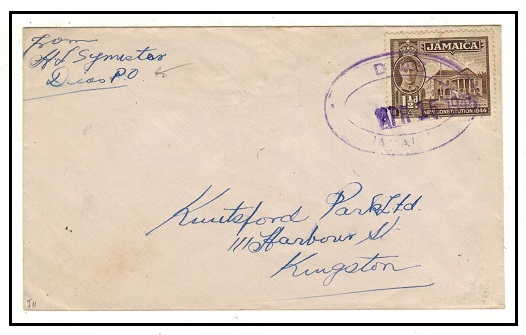 From
H L Symister
Dias P.O
JAMAICA
1½d
NEW CONSTITUTION 1944
APR 15
Knutsford Park Ltd.
111 Harbour St
Kingston